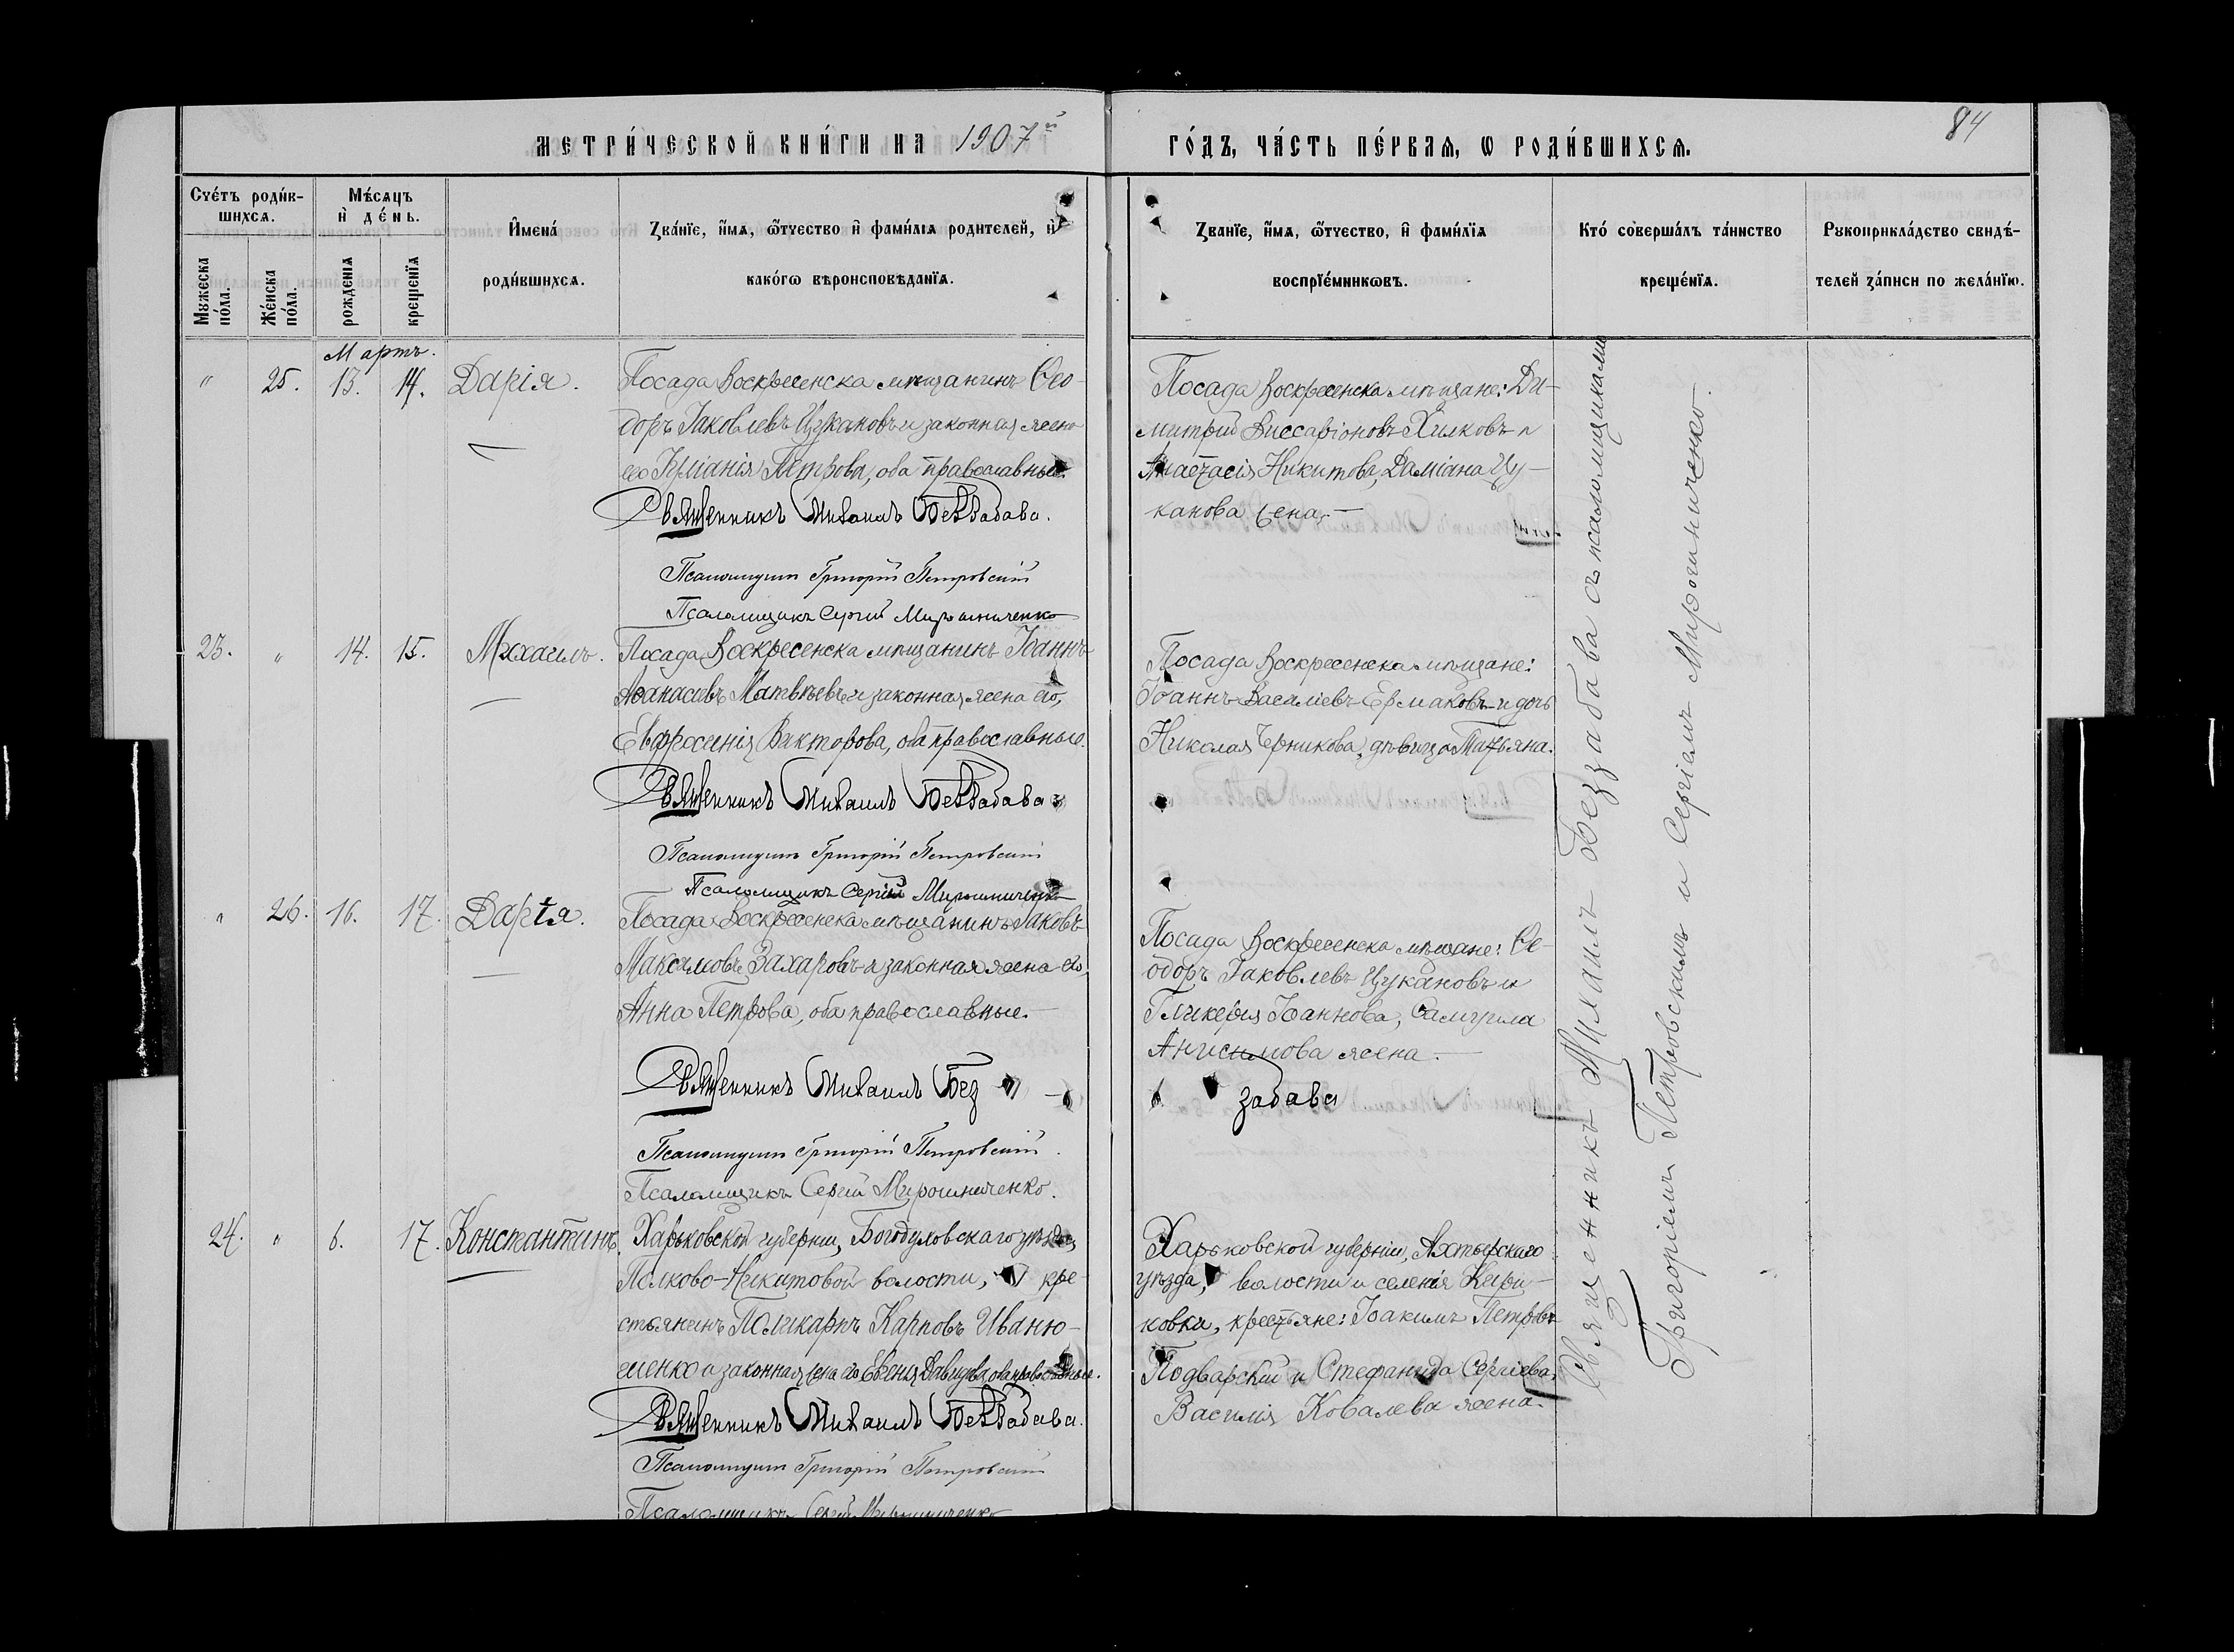 МЕТРИ́ЧЕСКОЙ КНИ́ГИ НА 1907й ГО́ДЪ, ЧА́СТЬ ПЕ́РВАѦ, Ѡ РОДИ́ВШИХСѦ.
84
Сче́тъ роди́в-
шихсѧ.
Мѣ́сѧцъ
и҆ де́нь.
Мꙋжеска
по́ла.
Же́нска
по́ла.
рождені́ѧ
креще́нїѧ
И҆мена́
роди́вшихсѧ.
Зва́нїе, и҆́мѧ, ѻ҆́тчество и҆ фами́лїѧ родителей, и҆
како́гѡ вѣроисповѣ́данїѧ.
Зва́нїе, и҆́мѧ, ѻ҆́тчество, и҆ фами́лїѧ
воспрїе́мникѡвъ.
Кто́ соверша́лъ та́инство
креще́нїѧ.
Рꙋкоприкла́дство свидѣ́-
телей за́писи по жела́нїю.
Мартъ.
" 25. 13. 14. Дарія.
Посада Воскресенска мѣщанинъ Ѳео-
доръ Іаковлевъ Цукановъ и законная жена
его Іуліанія Петрова, оба православные.
Священникъ Михаилъ Беззабава.
Псаломщикъ Григорій Петровскій
Псаломщикъ Сергій Мирошниченко
Посада Воскресенска мѣщане: Ди-
митрій Виссаріоновъ Хилковъ и
Анастасія Никитова, Даміана Цу-
канова жена.
23. " 14. 15. Михаилъ.
Посада Воскресенска мѣщанинъ Іоаннъ
Аѳанасіевъ Матвѣевъ и законная жена его,
Евфросинія Викторова, оба православные.
Священникъ Михаилъ Беззабава
Псаломщикъ Григорій Петровскій
Псаломщикъ Сергій Мирошниченко
Посада Воскресенска мѣщане:
Іоаннъ Василіевъ Ермаковъ и дочь
Николая Черникова, дѣвица Татьяна.
" 26. 16. 17. Дарія.
Посада Воскресенска мѣщанинъ Іаковъ
Максимовъ Захаровъ и законная жена его,
Анна Петрова, оба православные.
Священникъ Михаилъ Без
забава
Псаломщикъ Григорій Петровскій.
Псаломщикъ Сергій Мирошниченко.
Посада Воскресенска мѣщане: Ѳе-
одоръ Іаковлевъ Цукановъ и
Гликерія Іоаннова, Самуила
Анисимова жена.
24. " 6. 17. Константинъ.
Харьковской губерніи, Богодуховскаго уѣзда,
Полково-Никитовой волости, кре-
стьянинъ Поликарпъ Карповъ Иваню-
шенко и законная жена его Евгенія Давидова, оба православные.
Священникъ Михаилъ Беззабава.
Псаломщикъ Григорій Петровскій
Псаломщикъ Сергій Мирошниченко
Харьковской губерніи, Ахтырскаго
уѣзда, волости и селенія Кири-
ковки, крестьяне: Іоакимъ Петровъ
Подварскій и Стефанида Сергіева,
Василія Ковалева жена.
Священникъ Михаилъ Беззабава съ псаломщиками
Григоріемъ Петровскимъ и Сергіемъ Мирошниченко.